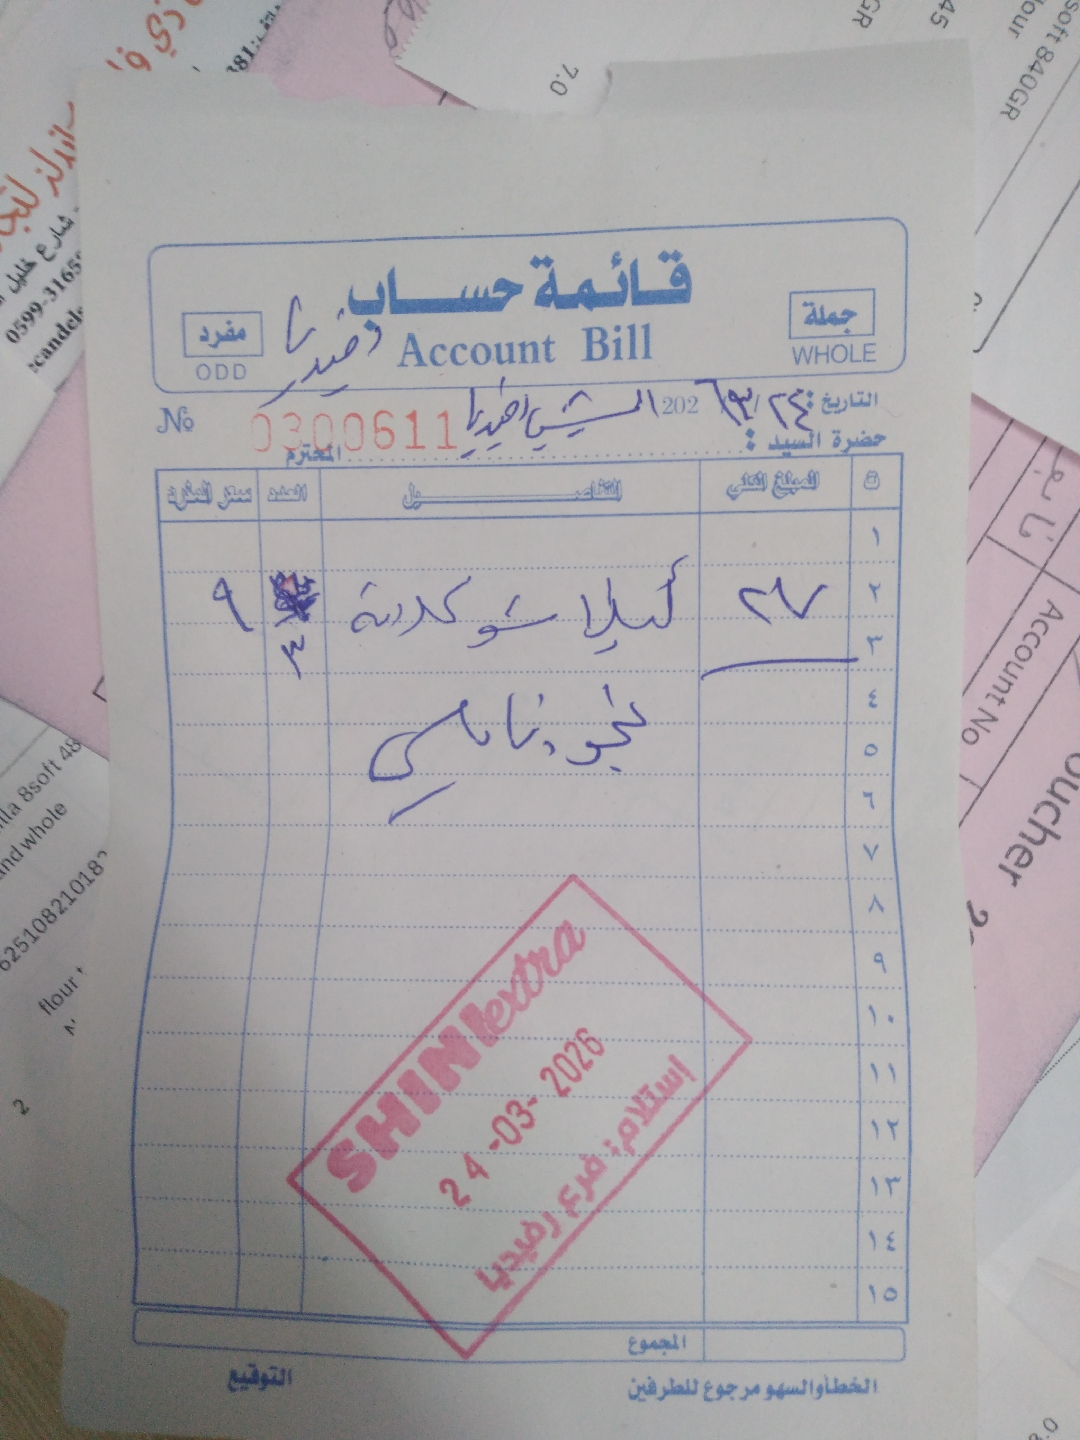 قائمة حساب
Account Bill
جملة
WHOLE
مفرد
ODD
رفيديا
التاريخ: ٢٤/٣/ 2026
№ 0300611
حضرة السيد: رفيديا المحترم
ت المبلغ الكلي التفاصيل العدد سعر المفرد
١
٢ ٢٧ شوكلاتة ٩
٣ ٣
٤
٥
٦
٧
٨
٩
١٠
١١
١٢
١٣
١٤
١٥
SHINI extra
24-03-2026
إستلام: فرع رفيديا
المجموع
الخطأ والسهو مرجوع للطرفين
التوقيع
7.0
soft 840GR
lour
45
GR
شارع خليل
0599-3165
Account No
oucher
8soft 48
and whole
6251082101 82
flour
2